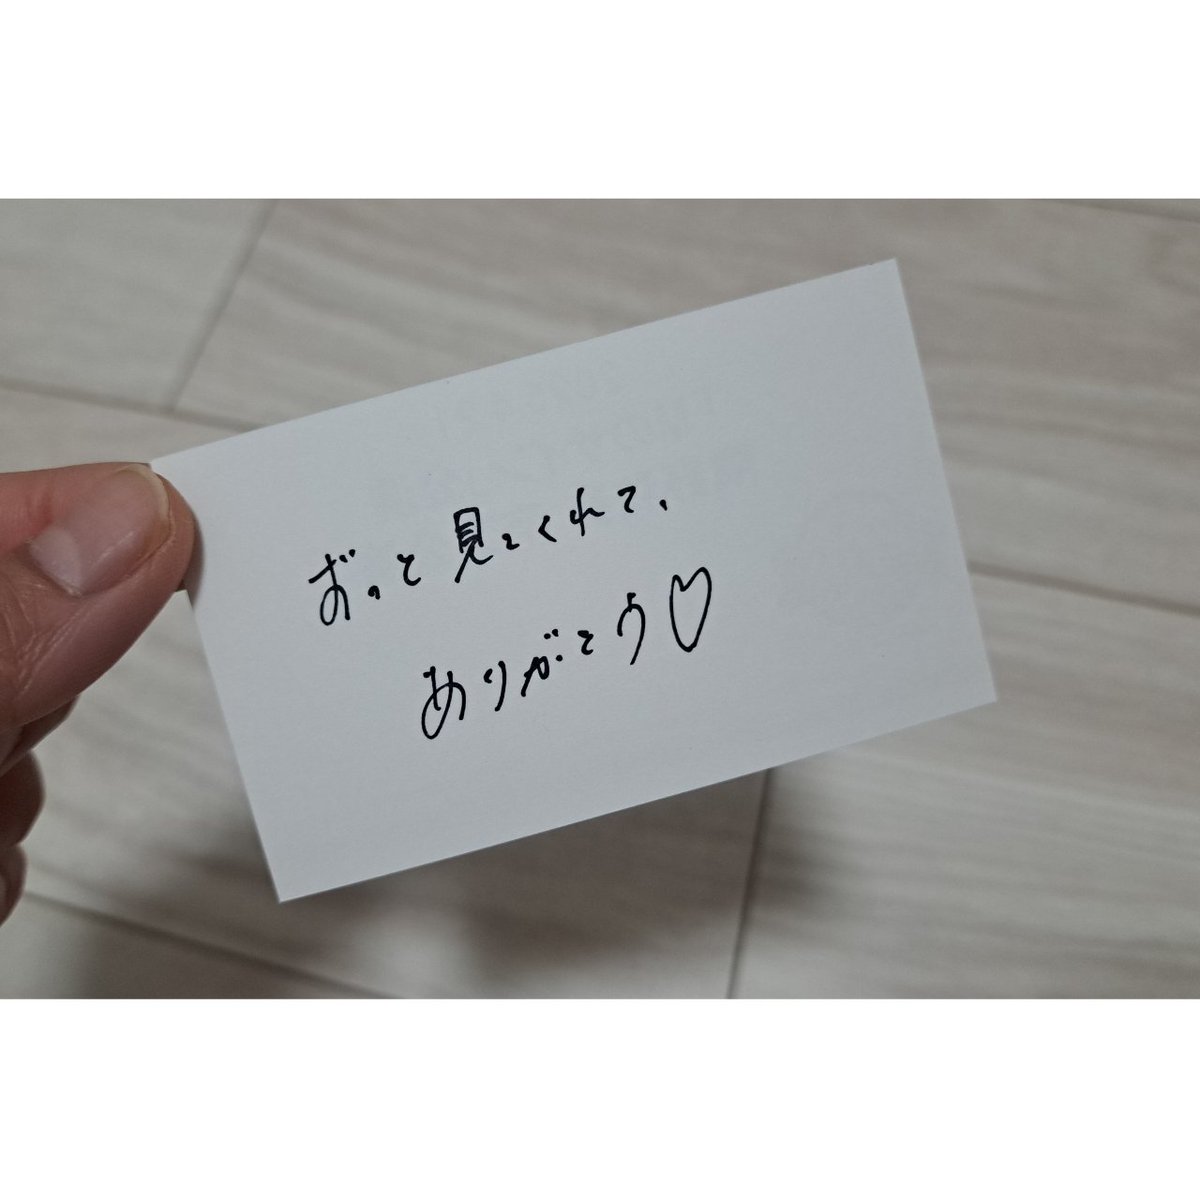 ずっと見てくれて、
ありがとう♡